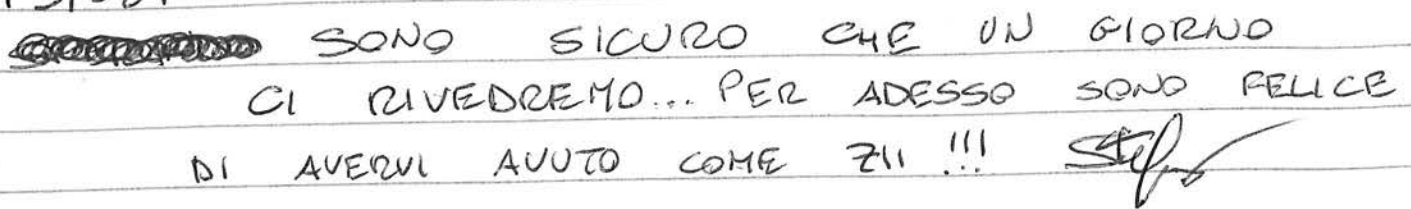 SONO SICURO CHE UN GIORNO
CI RIVEDREMO... PER ADESSO SONO FELICE
DI AVERVI AVUTO COME ZII !!!